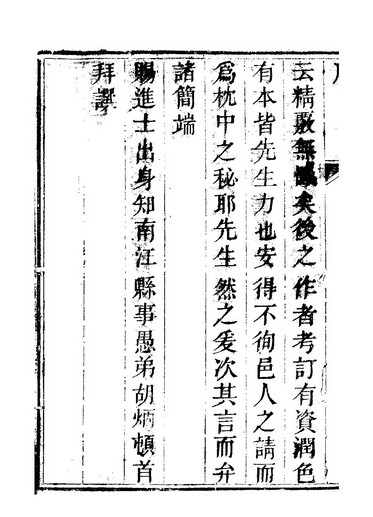 云精覈無憾矣後之作者考訂有資潤色
有本皆先生力也安得不徇邑人之請而
爲枕中之秘耶先生然之爰次其言而弁
諸簡端
賜進士出身知南江縣事愚弟胡炳頓首
拜譔